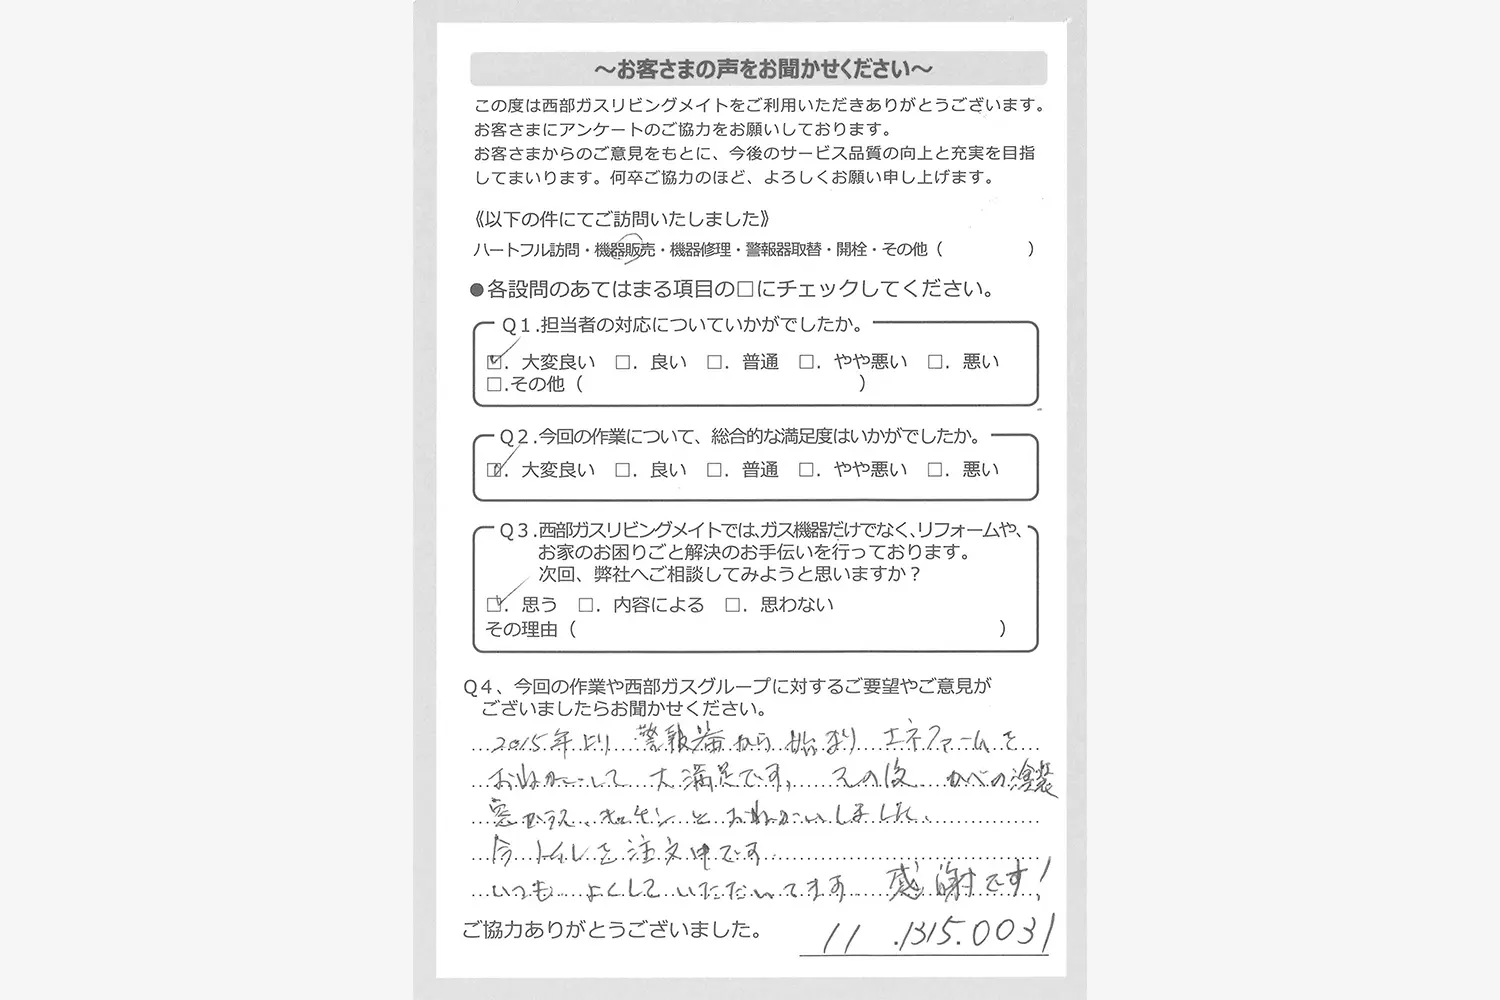 ～お客さまの声をお聞かせください～
この度は西部ガスリビングメイトをご利用いただきありがとうございます。
お客さまにアンケートのご協力をお願いしております。
お客さまからのご意見をもとに、今後のサービス品質の向上と充実を目指
してまいります。何卒ご協力のほど、よろしくお願い申し上げます。
《以下の件にてご訪問いたしました》
ハートフル訪問・機器販売・機器修理・警報器取替・開栓・その他（　　　　　　）
●各設問のあてはまる項目の□にチェックしてください。
Q１.担当者の対応についていかがでしたか。
☑. 大変良い □. 良い □. 普通 □. やや悪い □. 悪い
□.その他（　　　　　　　　　　　　　　　）
Q２.今回の作業について、総合的な満足度はいかがでしたか。
☑. 大変良い □. 良い □. 普通 □. やや悪い □. 悪い
Q３.西部ガスリビングメイトでは、ガス機器だけでなく、リフォームや、
お家のお困りごと解決のお手伝いを行っております。
次回、弊社へご相談してみようと思いますか？
☑. 思う □. 内容による □. 思わない
その理由（　　　　　　　　　　　　　　　　　　　　　　　）
Q４、今回の作業や西部ガスグループに対するご要望やご意見が
ございましたらお聞かせください。
2015年より 警報器から始まり エネファームを
おねがいして 大満足です、その後 かべの塗装
窓ガラス、キッチンと おねがいしました、
今 トイレを注文中です
いつも よくして いただいてます 感謝です!
ご協力ありがとうございました。
11 .1315.0031